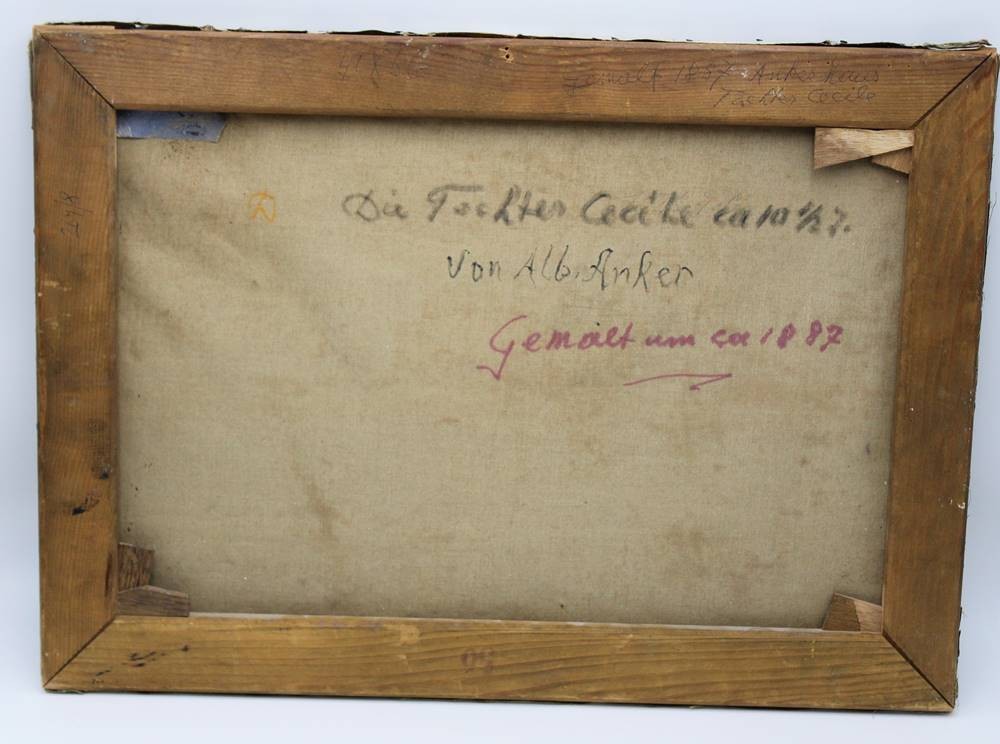 gemalt 1887 Ankerhaus
Tochter Cecile
Die Tochter Cecile ca 10 1/2 J.
Von Alb. Anker
Gemalt um ca 1887
50